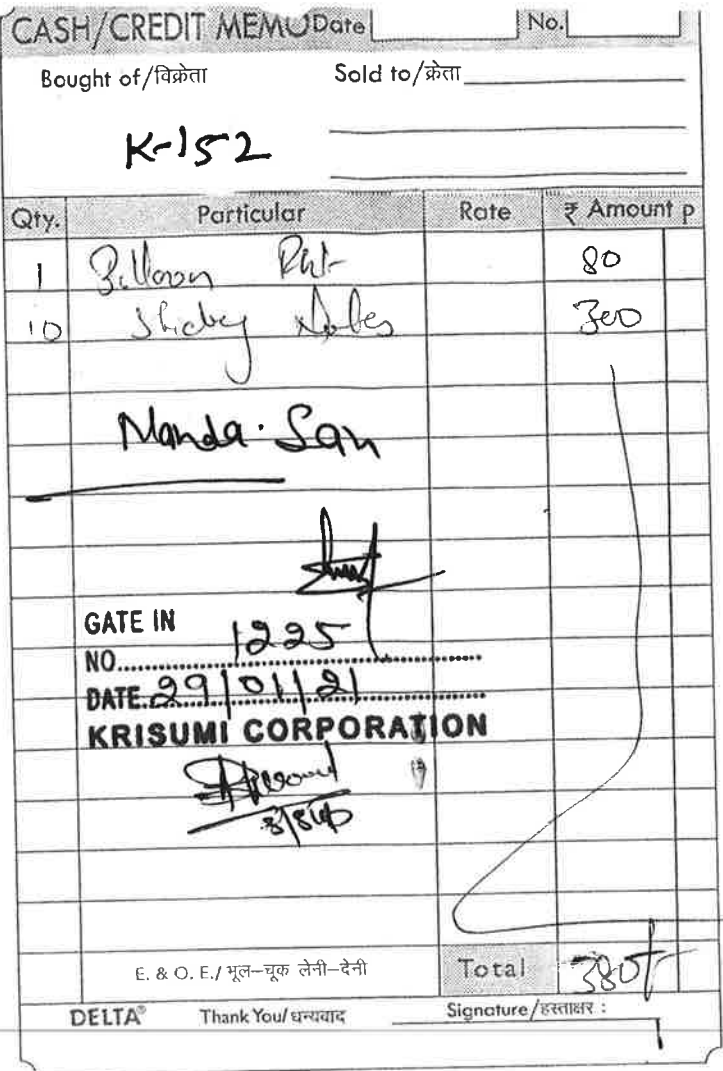 CASH/CREDIT MEMO Date No.
Bought of/विक्रेता Sold to/क्रेता
K-152
Qty. Particular Rate ₹ Amount P
1 Balloon Pkt 80
10 Sticky Notes 300
Manda. San
GATE IN
NO. 1225
DATE. 29/01/21
KRISUMI CORPORATION
E. & O. E./ भूल-चूक लेनी-देनी Total 380/-
DELTA® Thank You/धन्यवाद Signature/हस्ताक्षर :